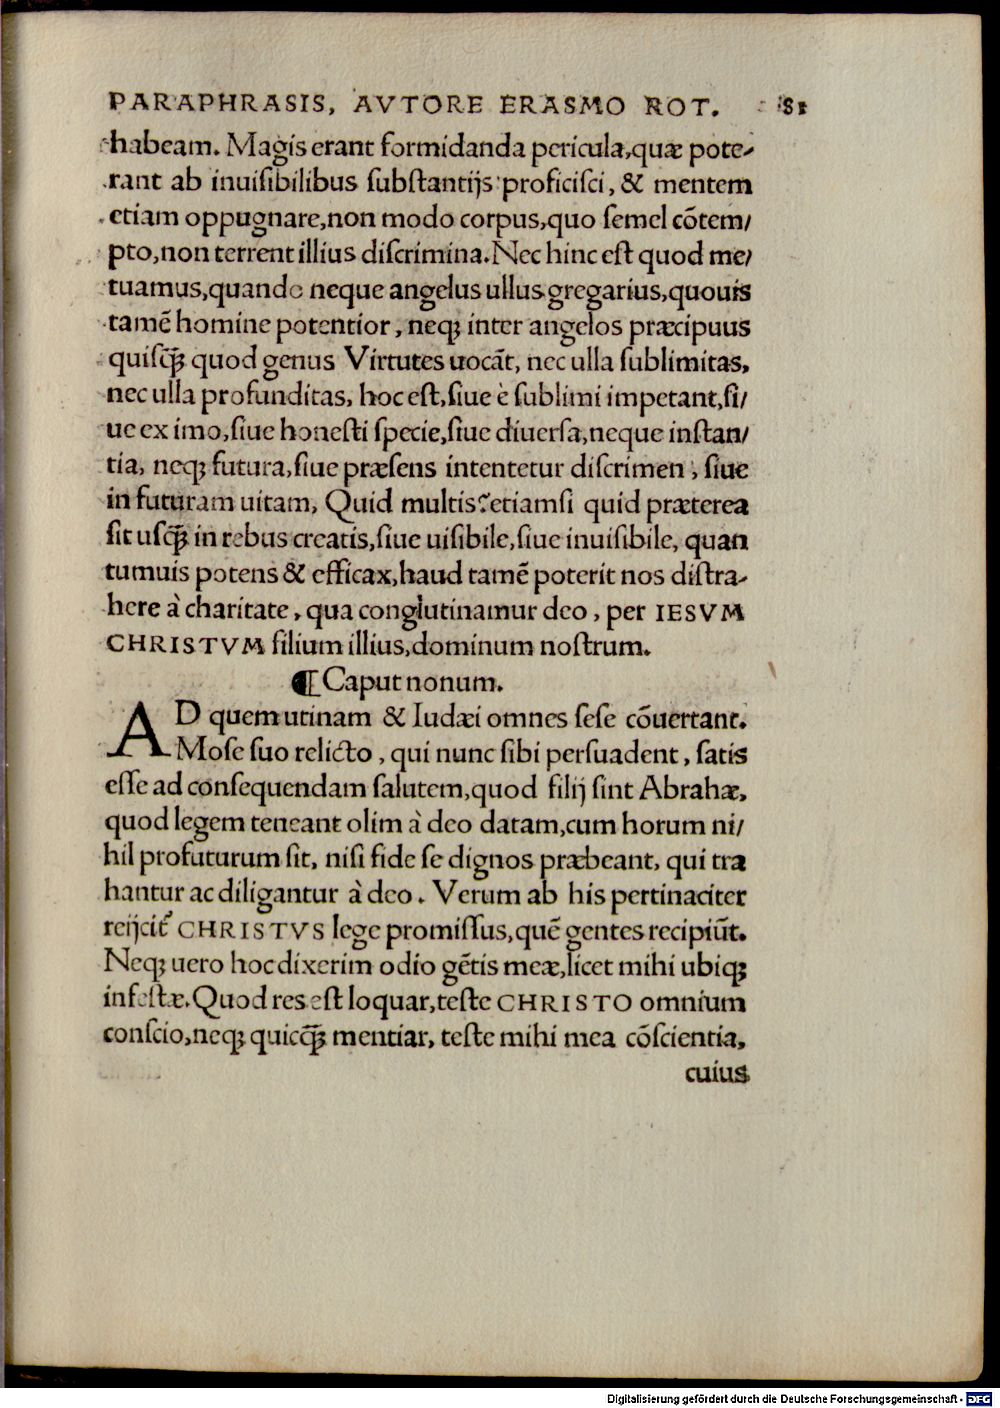 PARAPHRASIS, AVTORE ERASMO ROT. 81
habeam. Magis erant formidanda pericula,quæ pote⸗
rant ab inuisibilibus substantijs proficisci, & mentem
etiam oppugnare,non modo corpus,quo semel cõtem/
pto,non terrent illius discrimina.Nec hinc est quod me/
tuamus,quando neque angelus ullus gregarius,quouis
tamẽ homine potentior, neq; inter angelos præcipuus
quisq̃; quod genus Virtutes uocãt, nec ulla sublimitas,
nec ulla profunditas, hoc est,siue è sublimi impetant,si/
ue ex imo,siue honesti specie,siue diuersa,neque instan/
tia, neq; futura,siue præsens intentetur discrimen, siue
in futuram uitam, Quid multis? etiamsi quid præterea
sit usq̃; in rebus creatis,siue uisibile,siue inuisibile, quan
tumuis potens & efficax,haud tamẽ poterit nos distra⸗
here à charitate, qua conglutinamur deo, per IESVM
CHRISTVM filium illius,dominum nostrum.
¶ Caput nonum.
AD quem utinam & Iudæi omnes sese cõuertant.
Mose suo relicto, qui nunc sibi persuadent, satis
esse ad consequendam salutem,quod filij sint Abrahæ,
quod legem teneant olim à deo datam,cum horum ni/
hil profuturum sit, nisi fide se dignos præbeant, qui tra
hantur ac diligantur à deo. Verum ab his pertinaciter
reijcit᷑ CHRISTVS lege promissus,quẽ gentes recipiũt.
Neq; uero hoc dixerim odio gẽtis meæ,licet mihi ubiq;
infestæ.Quod res est loquar,teste CHRISTO omnium
conscio,neq; quicq̃; mentiar, teste mihi mea cõscientia,
cuius
Digitalisierung gefördert durch die Deutsche Forschungsgemeinschaft - DFG